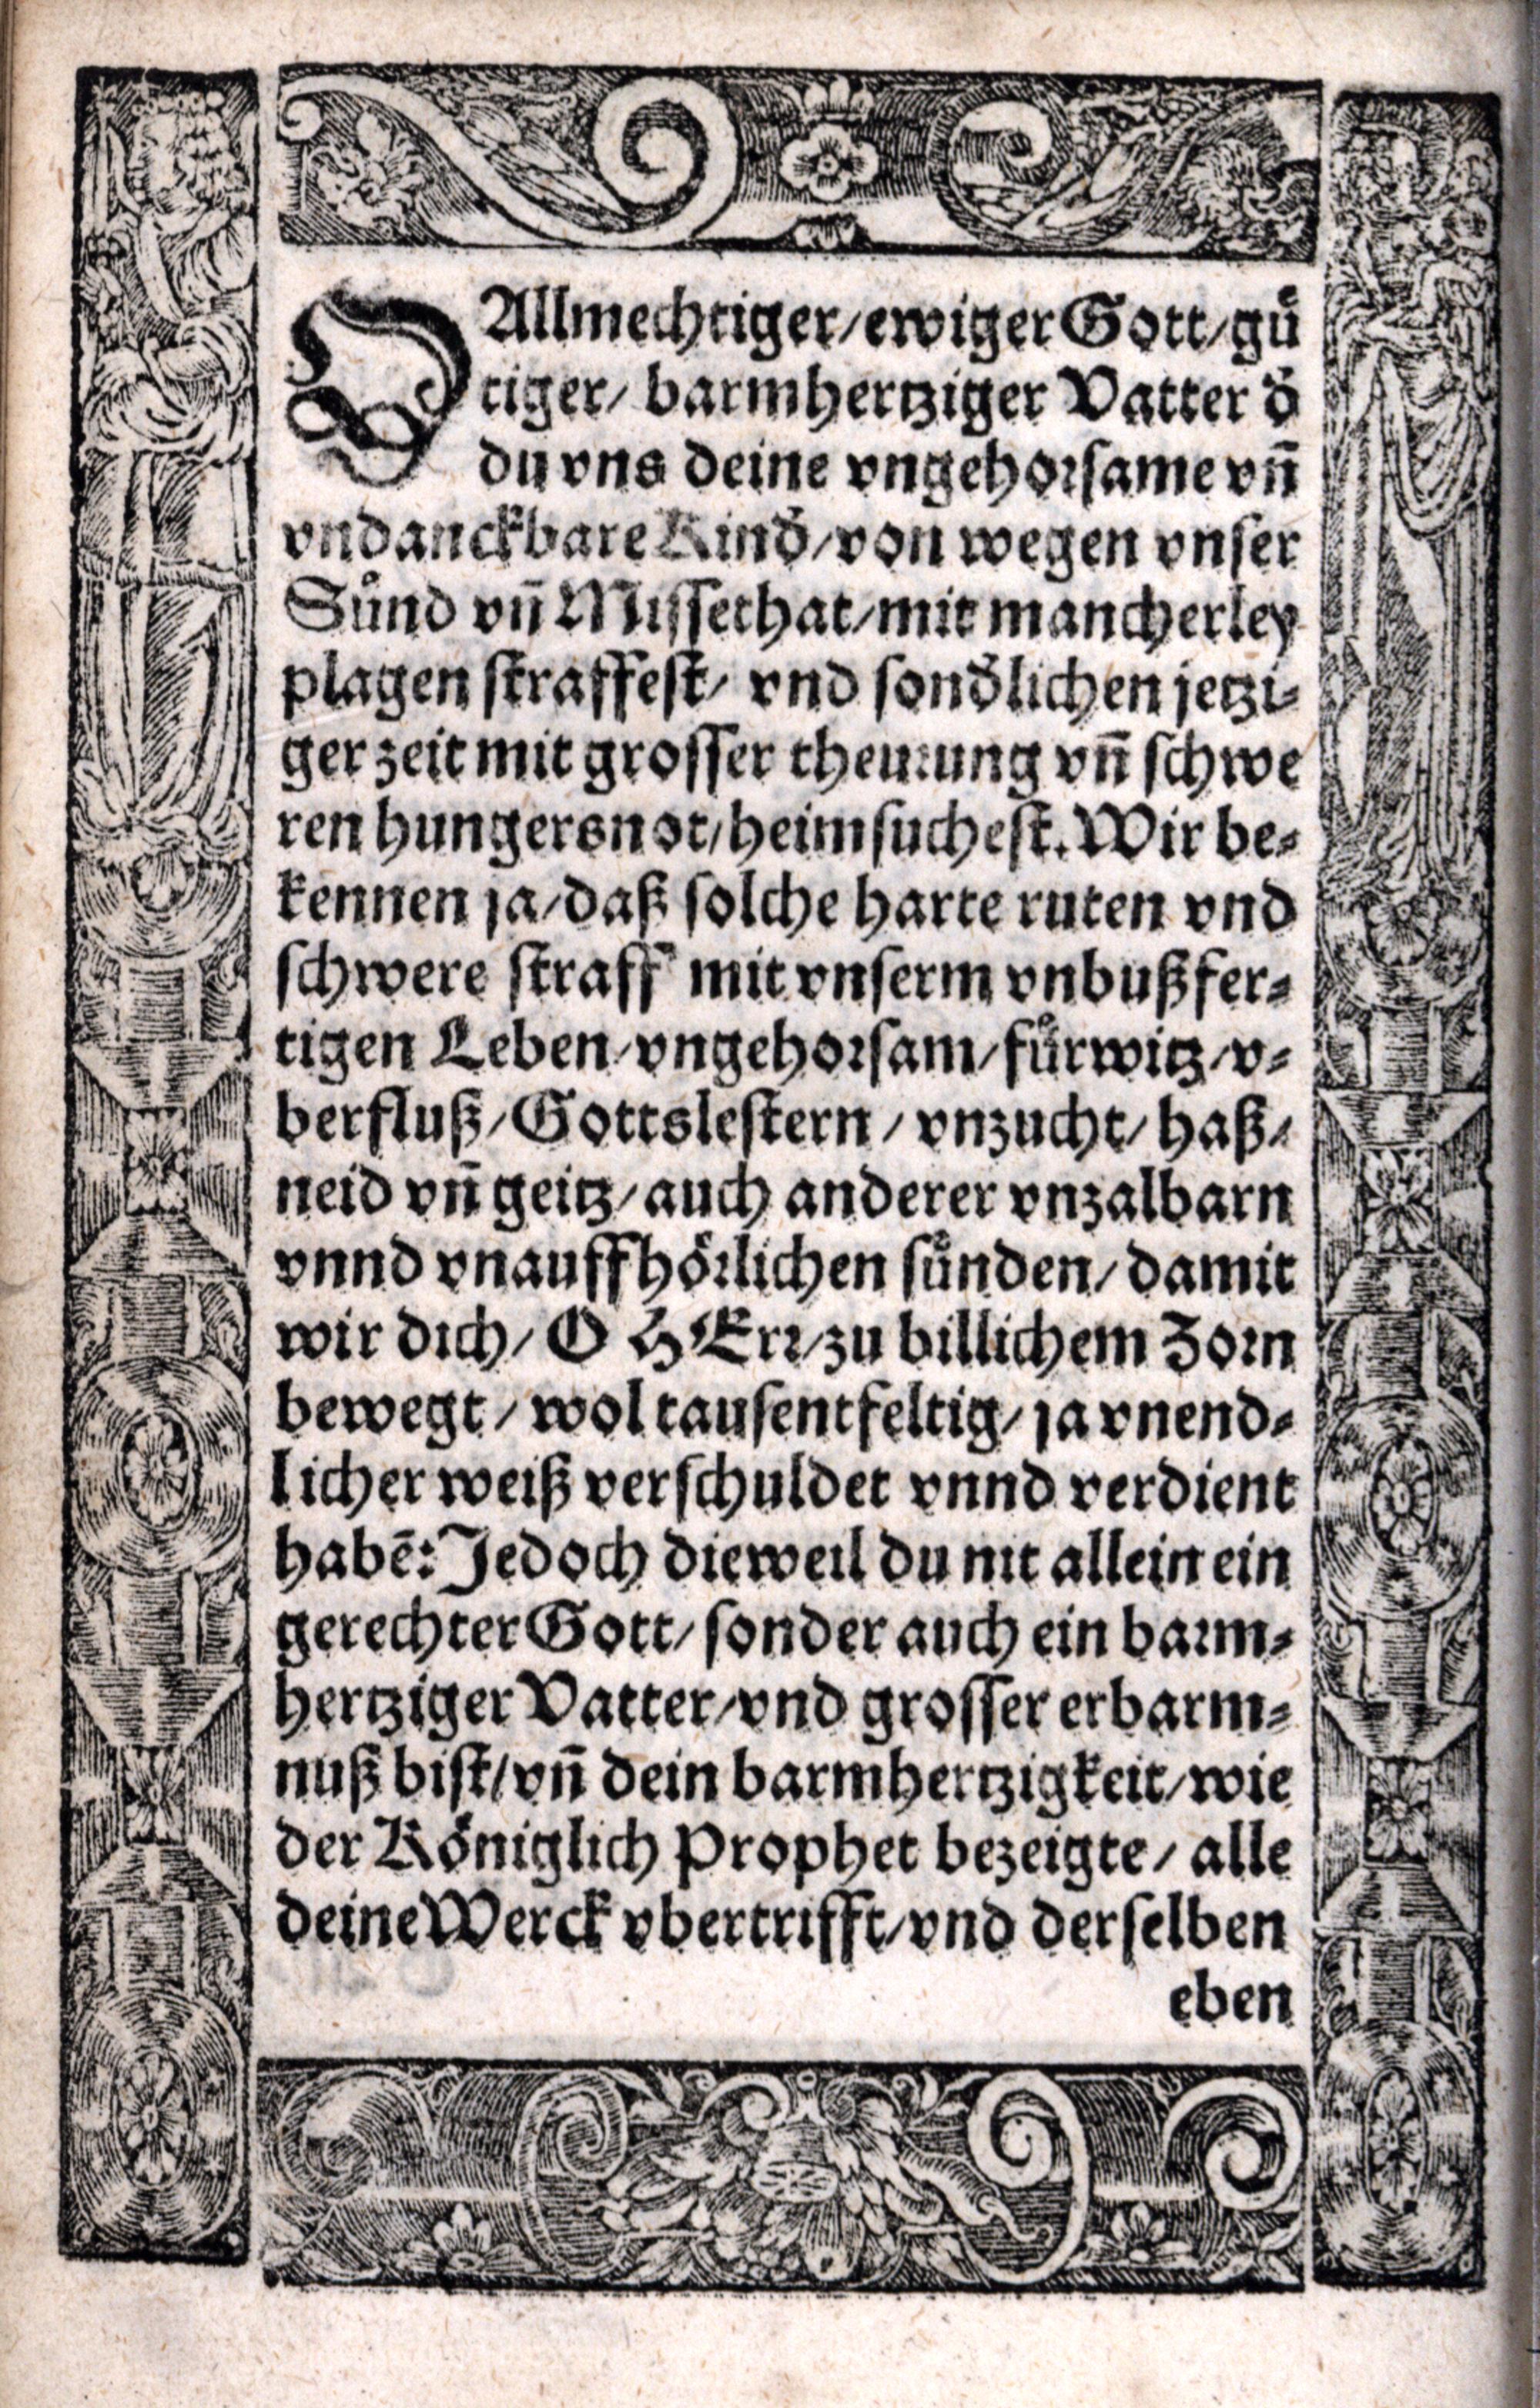 O Allmechtiger/ewiger Gott/guͤ
tiger/ barmhertziger Vatter d̕
du vns deine vngehorsame vn̄
vndanckbare Kind̕/von wegen vnser
Suͤnd vn̄ Missethat/mit mancherley
plagen straffest/ vnd sond̕lichen jetzi⸗
ger zeit mit grosser theurung vn̄ schwe
ren hungersnot/heimsuchest. Wir be⸗
kennen ja/daß solche harte ruten vnd
schwere straff mit vnserm vnbußfer⸗
tigen Leben/vngehorsam/fuͤrwitz/v⸗
berfluß/Gottslestern/vnzucht/haß/
neid vn̄ geitz/auch anderer vnzalbarn
vnnd vnauffhoͤrlichen suͤnden/damit
wir dich/O HErr/zu billichem Zorn
bewegt/wol tausentfeltig/ja vnend⸗
licher weiß verschuldet vnnd verdient
habē: Jedoch dieweil du nit allein ein
gerechter Gott/sonder auch ein barm⸗
hertziger Vatter/vnd grosser erbarm⸗
nuß bist/vn̄ dein barmhertzigkeit/wie
der Koͤniglich Prophet bezeigte/alle
deine Werck vbertrifft/vnd derselben
eben